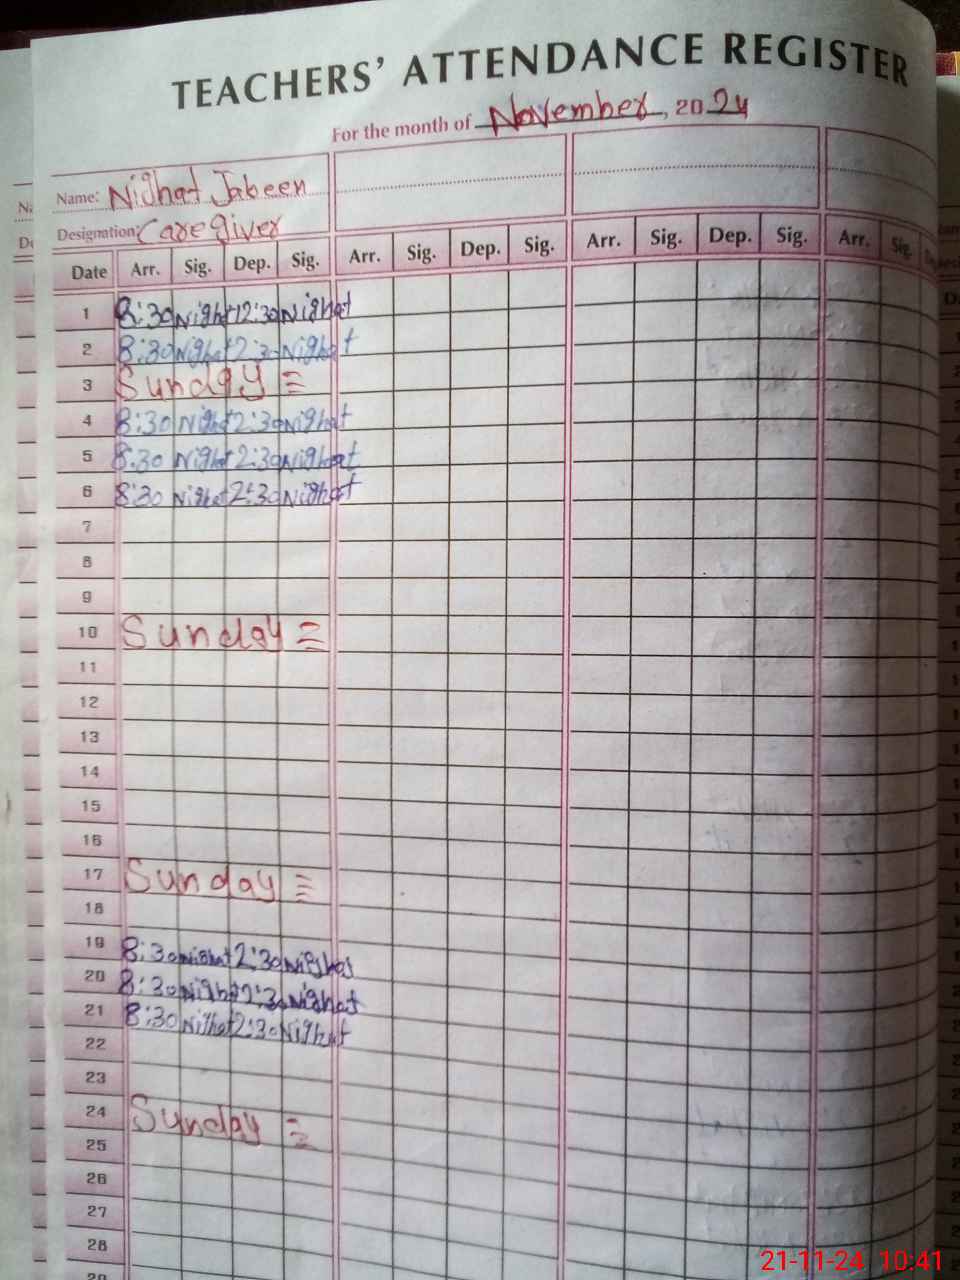 TEACHERS' ATTENDANCE REGISTER
For the month of November, 2024
Name: Nighat Jabeen
Designation: Caregiver
Date Arr. Sig. Dep. Sig. Arr. Sig. Dep. Sig. Arr. Sig. Dep. Sig. Arr. Sig.
1 8:30 Nighat 12:30 Nighat
2 8:30 Nighat 2:30 Nighat
3 Sunday
4 8:30 Nighat 2:30 Nighat
5 8:30 Nighat 2:30 Nighat
6 8:30 Nighat 2:30 Nighat
7
8
9
10 Sunday
11
12
13
14
15
16
17 Sunday
18
19 8:30 Nighat 2:30 Nighat
20 8:30 Nighat 2:30 Nighat
21 8:30 Nighat 2:30 Nighat
22
23
24 Sunday
25
26
27
28
29
21-11-24 10:41